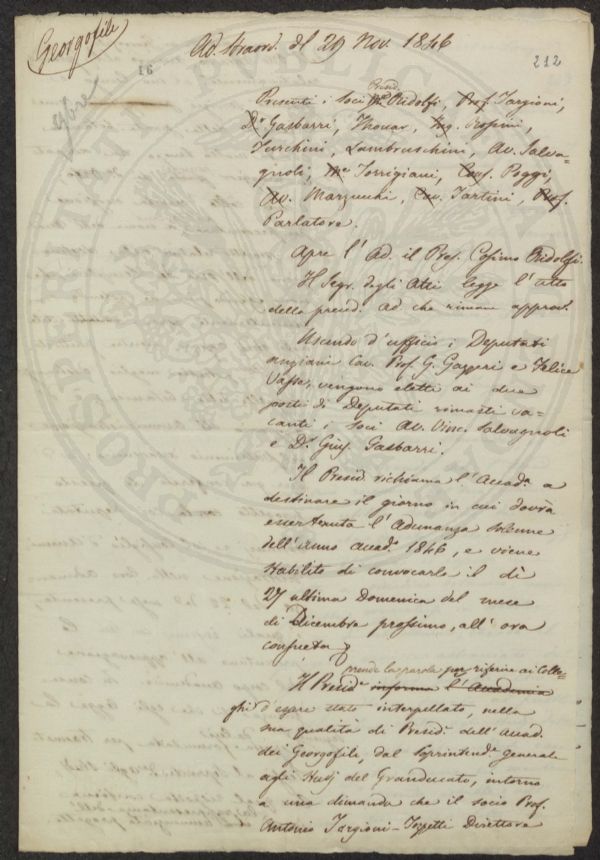 Georgofile
Ad. straord. del 29 Nov. 1846
212
16
Presid.
Presenti i Soci Ridolfi, Prof. Targioni,
Dr Gasbarri, Thouar, Ing. Rossini,
Turchini, Lambruschini, Av. Salva-
gnoli, Me Torrigiani, Cav. Poggi,
Av. Marzucchi, Cav. Tartini, Prof.
Parlatore.
Apre l'Ad. il Pres. Cosimo Ridolfi
Il Segr. degli Atti legge l'atto
della preced. Ad. che rimane approv.
Uscendo d'uffizio i Deputati
anziani Cav. Prof. G. Gazzeri e Felice
Vasse, vengono eletti ai due
posti di Deputati rimasti va-
canti i Soci Av. Vinc. Salvagnoli
e Dr Gius. Gasbarri.
Il Presid. richiama l'Accada a
destinare il giorno in cui dovrà
esser tenuta l'Adunanza solenne
dell'anno accad. 1846, e viene
stabilito di convocarla il dì
27 ultima Domenica del mese
di Dicembre prossimo, all'ora
consueta
prende la parola per riferire ai Colle-
Il Preside informa l'Accademia
ghi d'essere stato interpellato, nella
sua qualità di Presid. dell'accad.
dei Georgofili, dal Soprintende generale
agli Studj del Granducato, intorno
a una dimanda che il socio Prof.
Antonio Targioni-Tozzetti Direttore